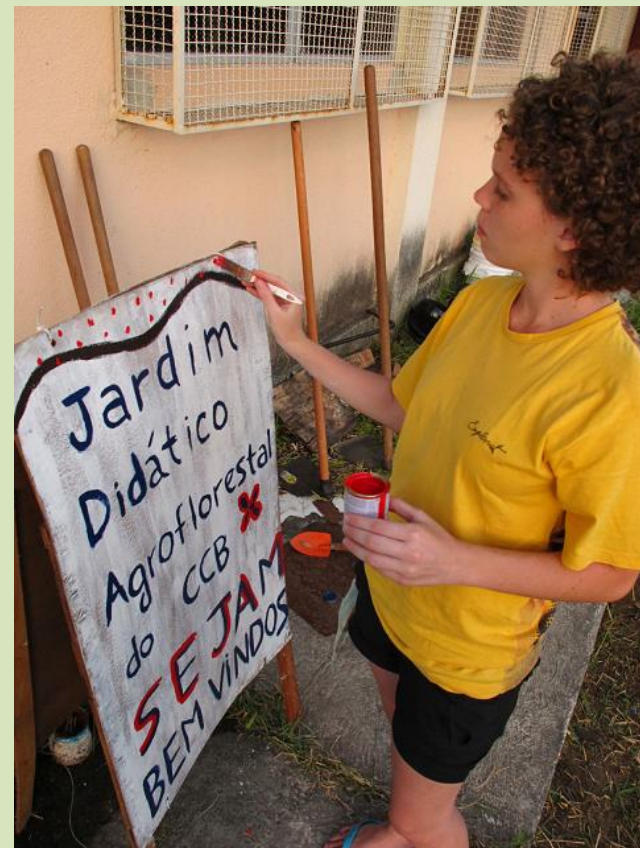 Jardim
Didático
Agroflorestal
do CCB
SEJAM
BEM VINDOS